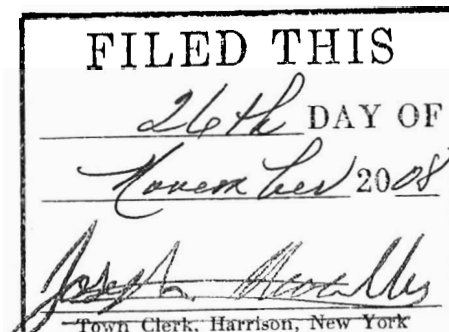 FILED THIS
26th DAY OF
November 2008
Joseph
Town Clerk, Harrison, New York